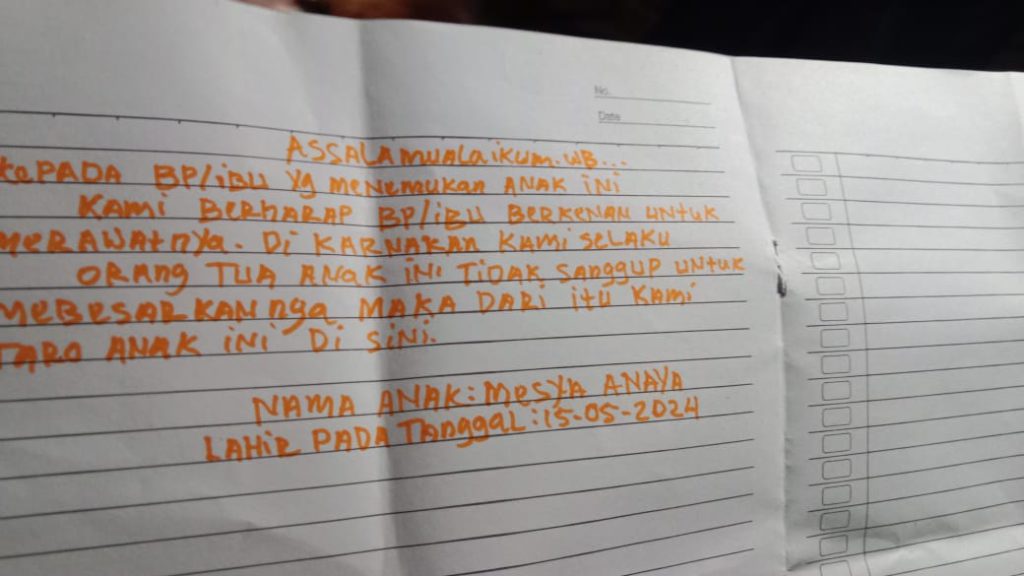 No.
Date
ASSALAMUALAIKUM.WB...
KEPADA BP/IBU Yg MENEMUKAN ANAK INI
KAMI BERHARAP BP/IBU BERKENAN UNTUK
MERAWATNYA. Di KARNAKAN KAMI SELAKU
ORANG TUA ANAK INI TIDAK SANGGUP UNTUK
MEBESARKANNga MAKA DARI ITU KAMI
TARO ANAK INI DI SINI.
NAMA ANAK: MESYA ANAYA
LAHIR PADA TANGGAL: 15-05-2024